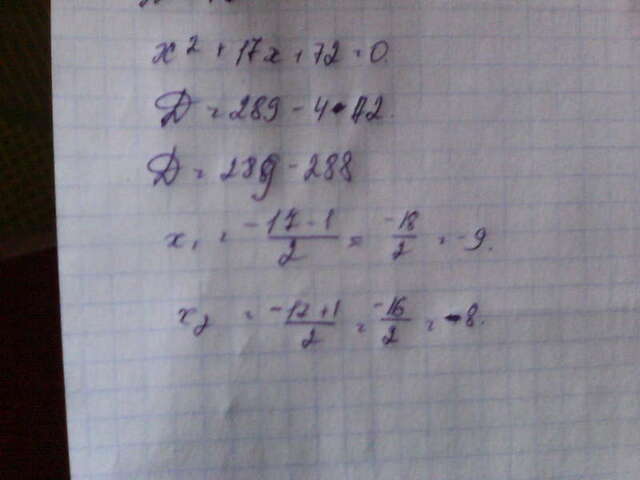 x² + 17x + 72 = 0.
D = 289 - 4 • 72.
D = 289 - 288
x₁ = (-17-1)/2 = -18/2 = -9.
x₂ = (-17+1)/2 = -16/2 = -8.